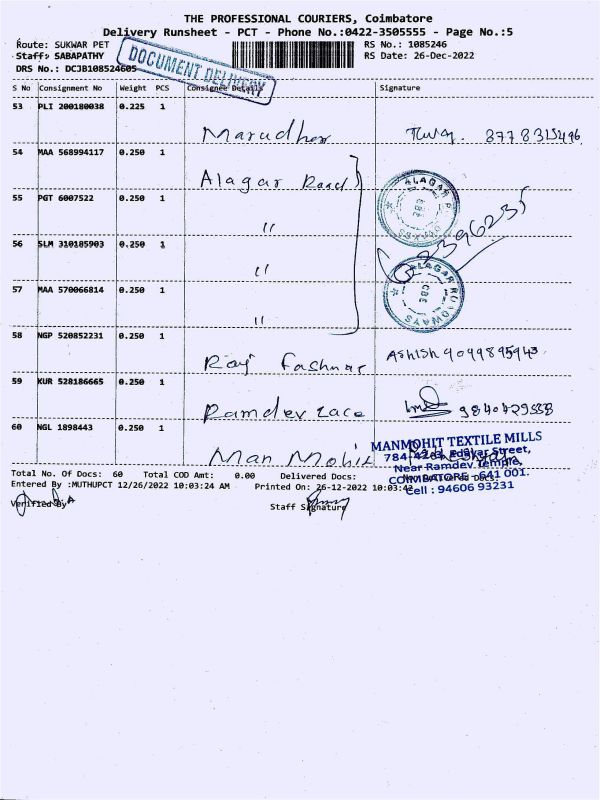 THE PROFESSIONAL COURIERS, Coimbatore
Delivery Runsheet - PCT - Phone No.:0422-3505555 - Page No.:5
Route: SUKWAR PET
RS No.: 1085246
Staff: SABAPATHY
RS Date: 26-Dec-2022
DRS No.: DCJB108524605
DOCUMENT DELIVERY
S No Consignment No Weight PCS Consignee Details Signature
53 PLI 200180038 0.225 1
Marudhar
54 MAA 568994117 0.250 1
Alagar Road
ALAGAR
55 PGT 6007522 0.250 1
"
56 SLM 310185903 0.250 1
"
ALAGAR ROADWAYS
CBE
57 MAA 570066814 0.250 1
"
58 NGP 520852231 0.250 1
Raj Fashnar
Ashish 9099895943
59 KUR 528186665 0.250 1
Ramdev Lace
60 NGL 1898443 0.250 1
Man Mohit
MANMOHIT TEXTILE MILLS
Street,
Near Ramdev Temple,
COIMBATORE - 641 001.
Cell : 94606 93231
Total No. Of Docs: 60 Total COD Amt: 0.00 Delivered Docs:
Entered By :MUTHUPCT 12/26/2022 10:03:24 AM Printed On: 26-12-2022 10:03:42
Verified By
Staff Signature